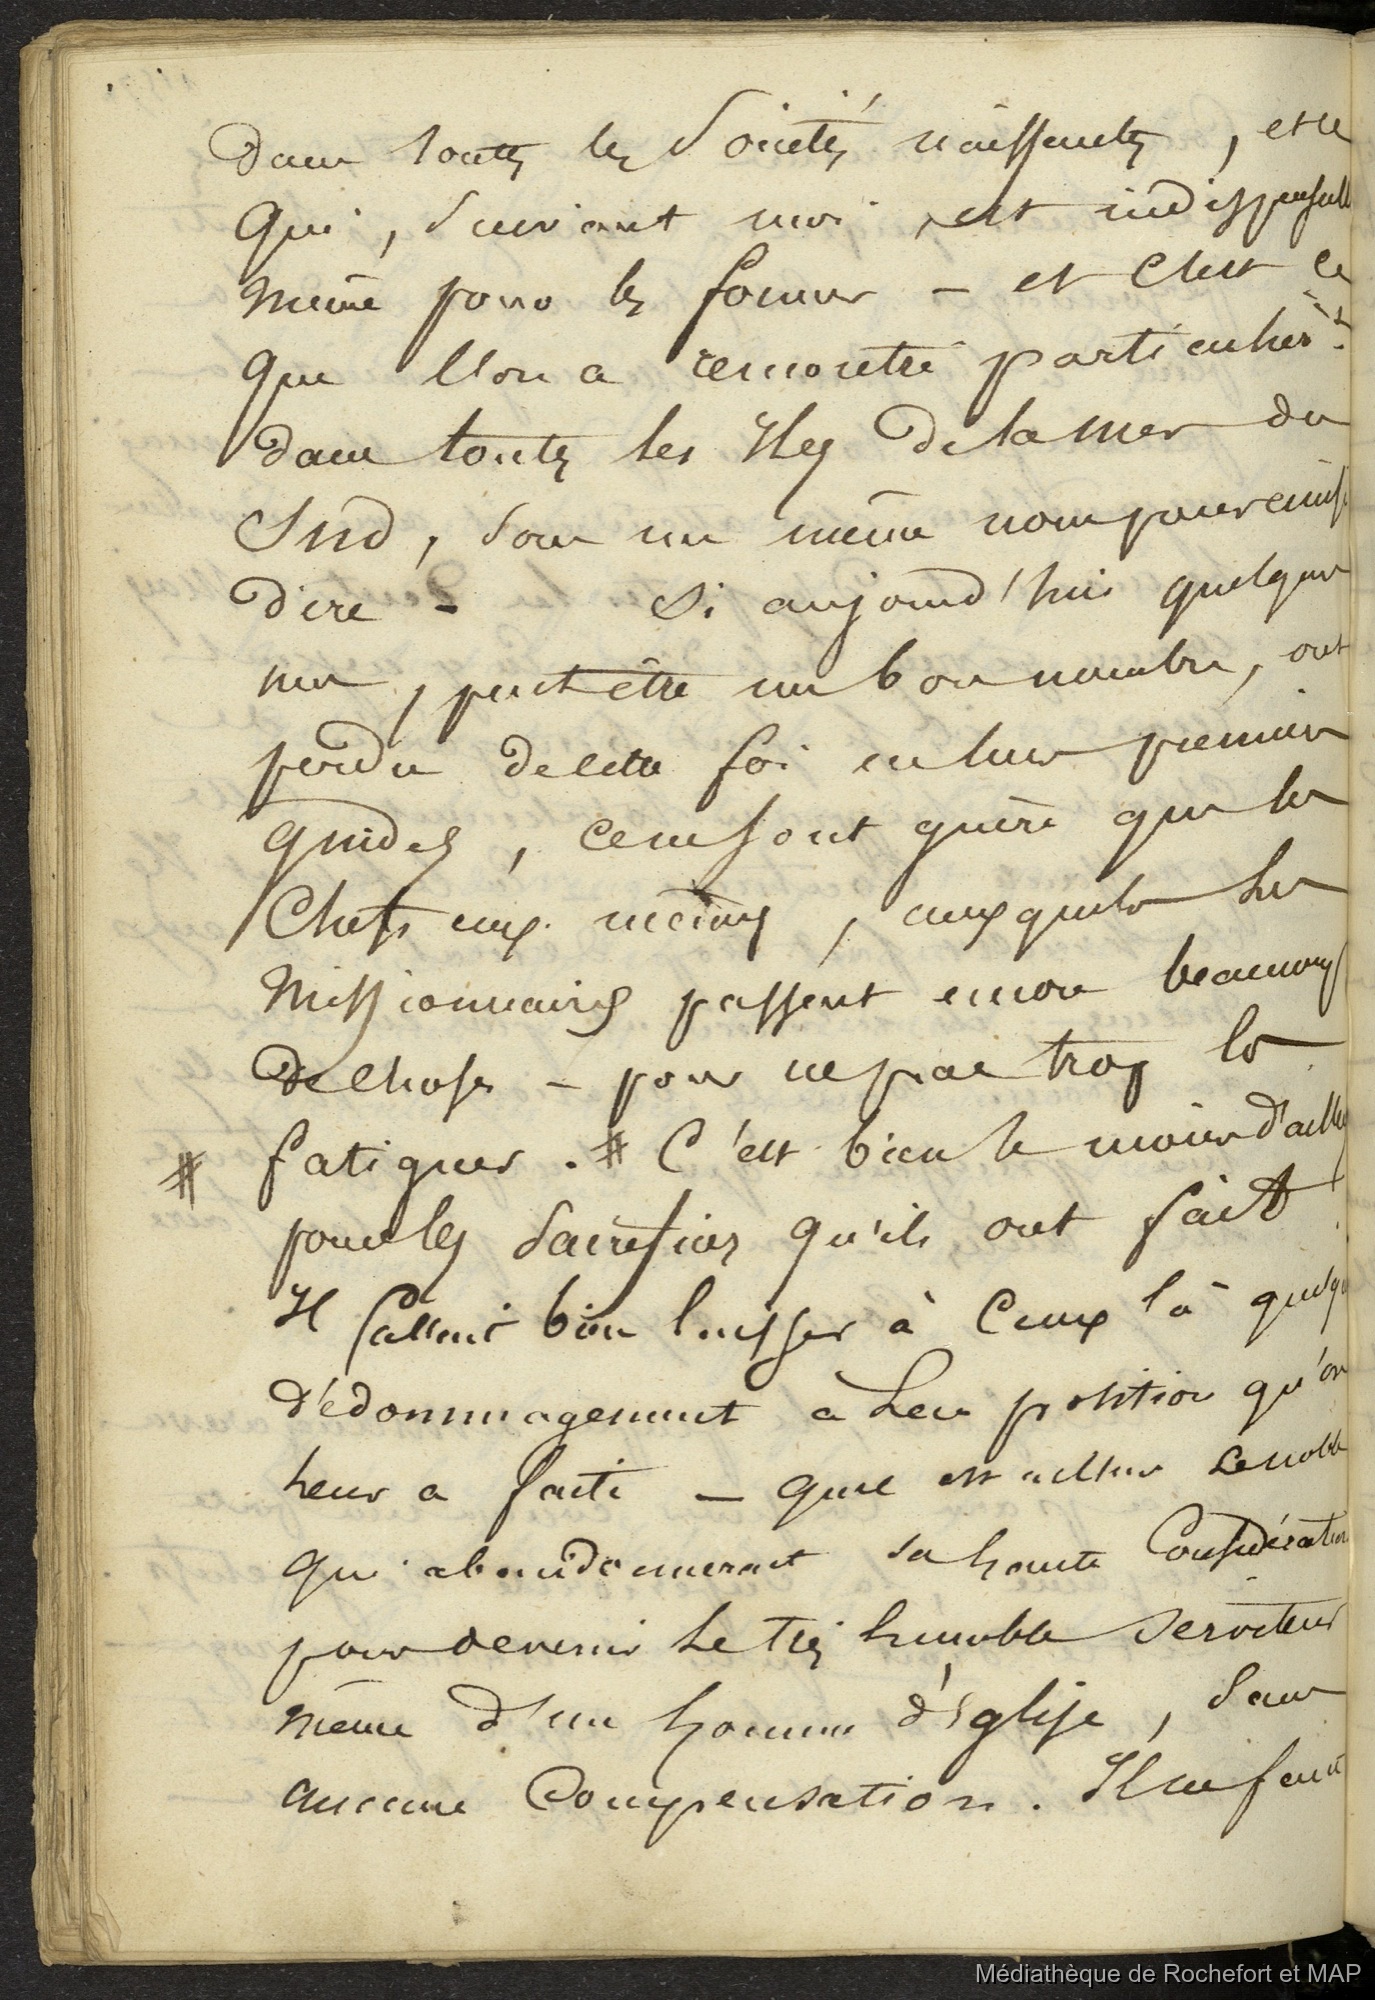 dans toutes les Sociétés naissantes, et ce
qui, suivant moi, est indispensable
même pour les former - et c'est ce
que l'on a remontré particulièrt
dans toutes les Iles de la mer du
Sud, sous un même nom pour ainsi
dire - Si aujourd'hui quelques
uns, peut être un bon nombre, ont
perdu de cette foi en leurs premiers
guides, ce ne sont guère que les
Chefs eux mêmes, auxquels les
Missionnaires passent encore beaucoup
de choses - pour ne pas trop les
# fatiguer. # C'est bien le moins d'ailleurs
pour les sacrifices qu'ils ont fait
Il fallait bien laisser à ceux là quelque
dédommagement à leur position qu'on
leur a faite - quel est ailleurs le noble
qui abandonnerait sa haute Considération
pour devenir le très humble serviteur
même d'un homme d'Eglise, sans
aucune Compensation. Il ne faut
Médiathèque de Rochefort et MAP